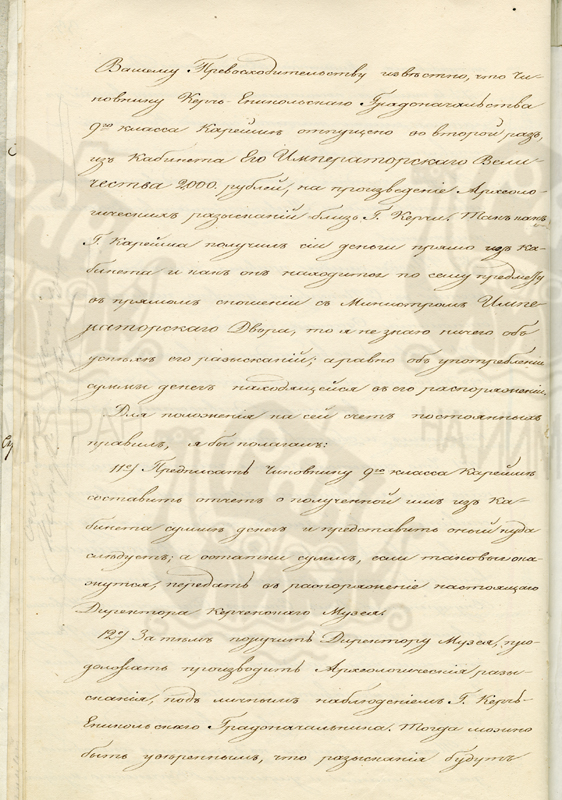 Вашему Превосходительству известно, что Чи-
новнику Керчь-Еникольскаго Градоначальства
9го класса Карейшѣ отпущено во второй разъ,
изъ Кабинета Его Императорскаго Вели-
чества 2000 рублей, на произведеніе Археоло-
гическихъ разысканій близь Г. Керчи. Такъ какъ
Г. Карейша получилъ сіи деньги прямо изъ Ка-
бинета и какъ онъ находится по сему предмету
въ прямомъ сношеніи съ Министромъ Импе-
раторскаго Двора, то я не знаю ничего объ
успѣхѣ его разысканій; а равно объ употребленіи
суммы денегъ находящейся въ его распоряженіи.
Для положенія на сей счетъ постоянныхъ
правилъ, я бы полагалъ:
11е) Предписать Чиновнику 9го класса Карейшѣ
составить отчетъ о полученной имъ изъ Ка-
бинета суммѣ денегъ и представить оный куда
слѣдуетъ; а остатки суммъ, если таковые ока-
жутся, передать въ распоряженіе настоящаго
Директора Керченскаго Музея.
12е) За тѣмъ поручить Директору Музея, про-
должать производить Археологическія разы-
сканія, подъ личнымъ наблюденіемъ Г. Керчь-
Еникольскаго Градоначальника. Тогда можно
быть увѣреннымъ, что разысканія будутъ